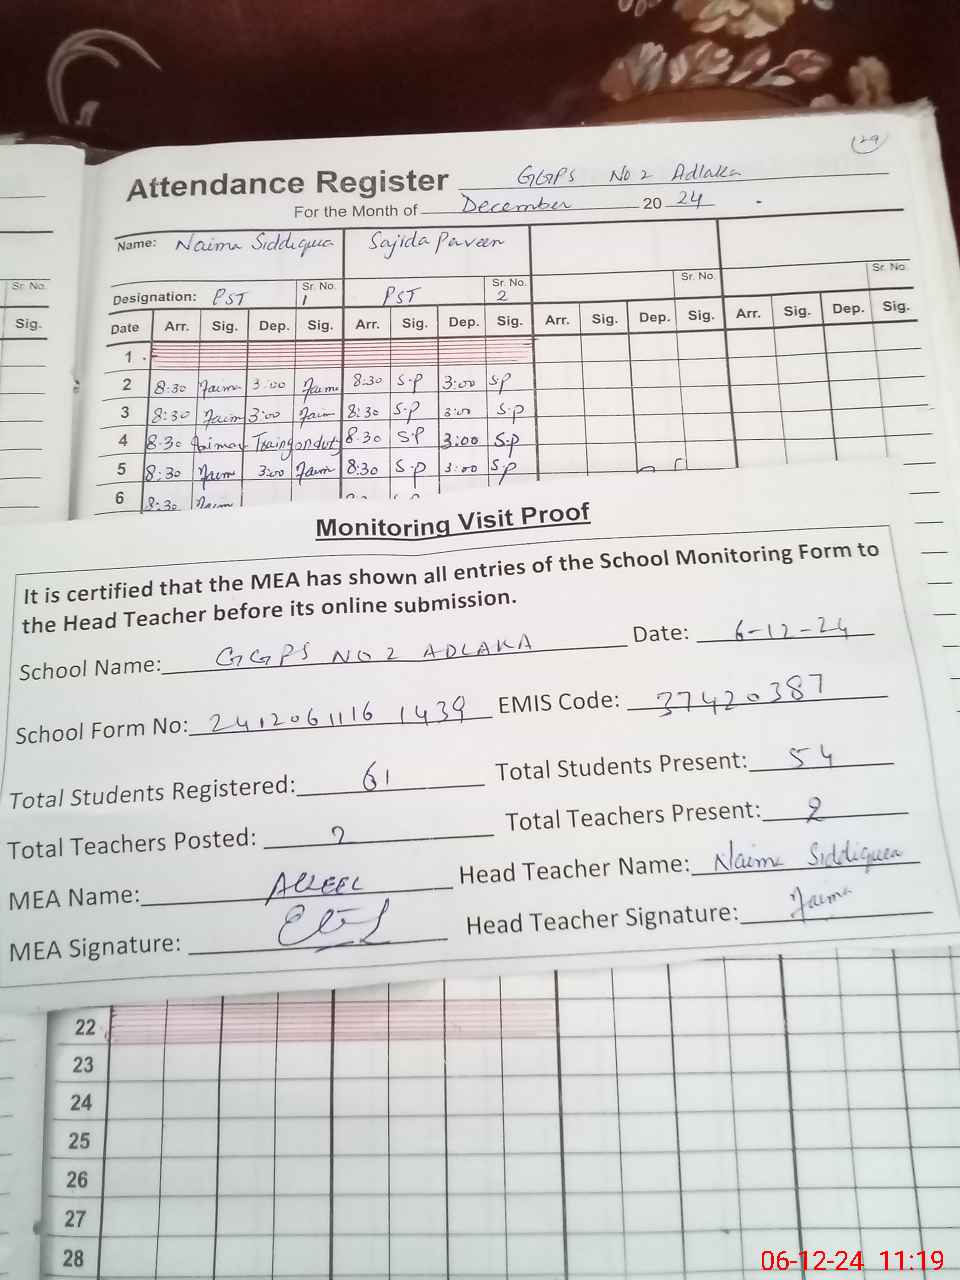 129
Attendance Register GGPS No 2 Adlaka
For the Month of December 20 24
Name: Naima Siddiquea Sajida Paveen
Sr. No. Sr. No. Sr. No. Sr. No. Sr. No.
Designation: PST 1 PST 2
Sig. Date Arr. Sig. Dep. Sig. Arr. Sig. Dep. Sig. Arr. Sig. Dep. Sig. Arr. Sig. Dep. Sig.
1
2 8:30 Naima 3:00 Naima 8:30 S.P 3:00 S.P
3 8:30 Naima 3:00 Naima 8:30 S.P 3:00 S.P
4 8:30 Naima Traing on duty 8:30 S.P 3:00 S.P
5 8:30 Naima 3:00 Naima 8:30 S.P 3:00 S.P
6 8:30 Naima
Monitoring Visit Proof
It is certified that the MEA has shown all entries of the School Monitoring Form to
the Head Teacher before its online submission.
School Name: GGPS NO 2 ADLAKA Date: 6-12-24
School Form No: 2412061116 1439 EMIS Code: 37420387
Total Students Registered: 61 Total Students Present: 54
Total Teachers Posted: 2 Total Teachers Present: 2
MEA Name: Head Teacher Name: Naima Siddiquea
MEA Signature: Head Teacher Signature: Naima
22
23
24
25
26
27
28
06-12-24 11:19